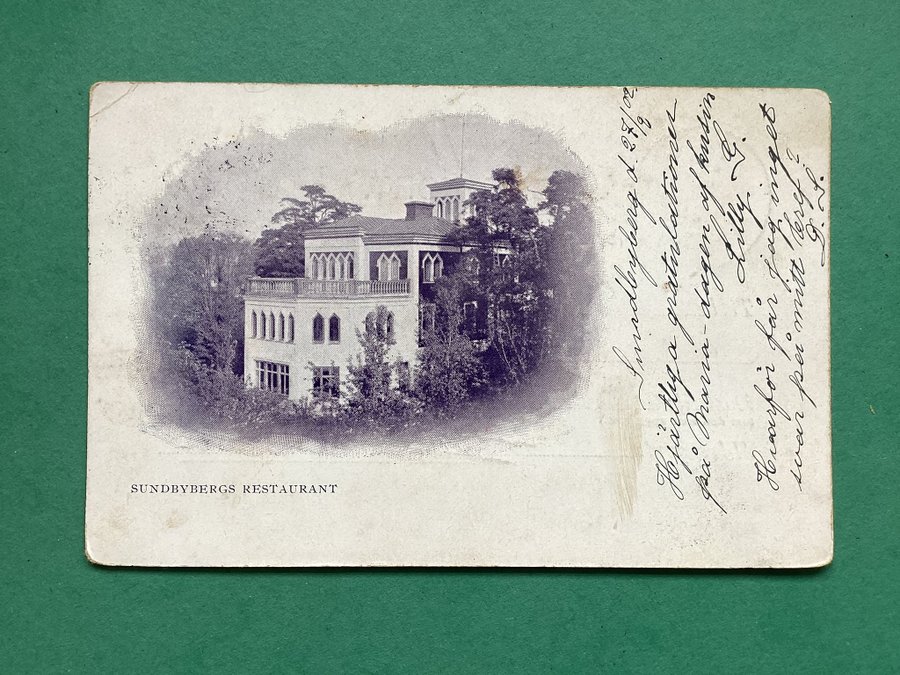 SUNDBYBERGS RESTAURANT
Sundbyberg d. 27/2 02
Hjärtliga gratulationer
på Maria-dagen af kusin
Lilly G.
Hvarför får jag inget
svar på mitt bref?
D. S.